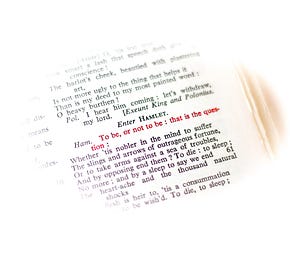 smart a lash that speech doth
conscience!
The harlot's cheek, beautied with plastering
art,
Is not more ugly to the thing that helps it
Than is my deed to my most painted word:
O heavy burthen!
Pol. I hear him coming: let's withdraw,
my lord. [Exeunt King and Polonius.
Enter HAMLET.
Ham. To be, or not to be: that is the ques-
tion:
Whether 'tis nobler in the mind to suffer
The slings and arrows of outrageous fortune,
Or to take arms against a sea of troubles,
And by opposing end them? To die: to sleep; 61
No more; and by a sleep to say we end
The heart-ache and the thousand natural
shocks
That flesh is heir to, 'tis a consummation
to be wish'd. To die, to sleep;
means